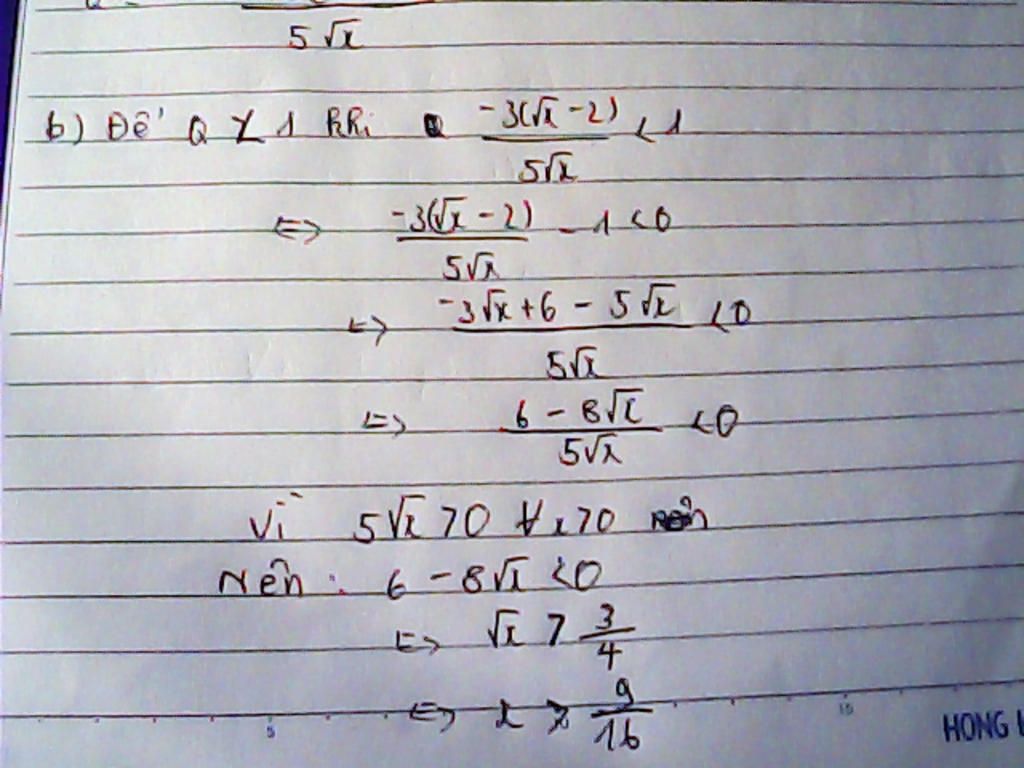 5√x
b) Để Q < 1 khi -3(√x - 2)/5√x < 1
<=> -3(√x - 2)/5√x - 1 < 0
<=> -3√x + 6 - 5√x/5√x < 0
<=> 6 - 8√x/5√x < 0
Vì 5√x > 0 ∀x > 0
Nên : 6 - 8√x < 0
<=> √x > 3/4
<=> x > 9/16
5 10
HONG